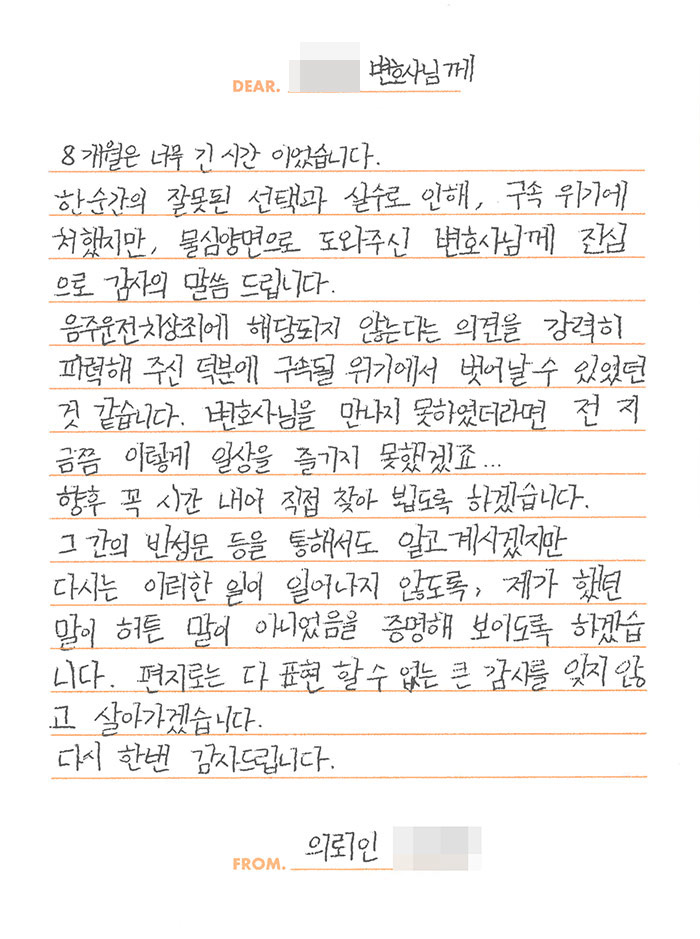 DEAR. 변호사님께
8개월은 너무 긴 시간 이었습니다.
한순간의 잘못된 선택과 실수로 인해, 구속 위기에
처했지만, 물심양면으로 도와주신 변호사님께 진심
으로 감사의 말씀 드립니다.
음주운전치상죄에 해당되지 않는다는 의견을 강력히
피력해 주신 덕분에 구속될 위기에서 벗어날 수 있었던
것 같습니다. 변호사님을 만나지 못하였더라면 전 지
금쯤 이렇게 일상을 즐기지 못했겠죠...
향후 꼭 시간 내어 직접 찾아 뵙도록 하겠습니다.
그 간의 반성문 등을 통해서도 알고계시겠지만
다시는 이러한 일이 일어나지 않도록, 제가 했던
말이 허튼 말이 아니었음을 증명해 보이도록 하겠습
니다. 편지로는 다 표현 할 수 없는 큰 감사를 잊지 않
고 살아가겠습니다.
다시 한번 감사드립니다.
FROM. 의뢰인